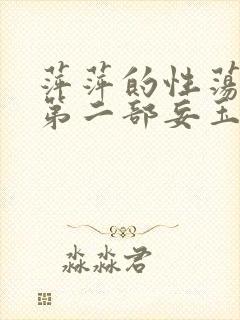 萍萍的性荡
第二部妄玉
淼淼君